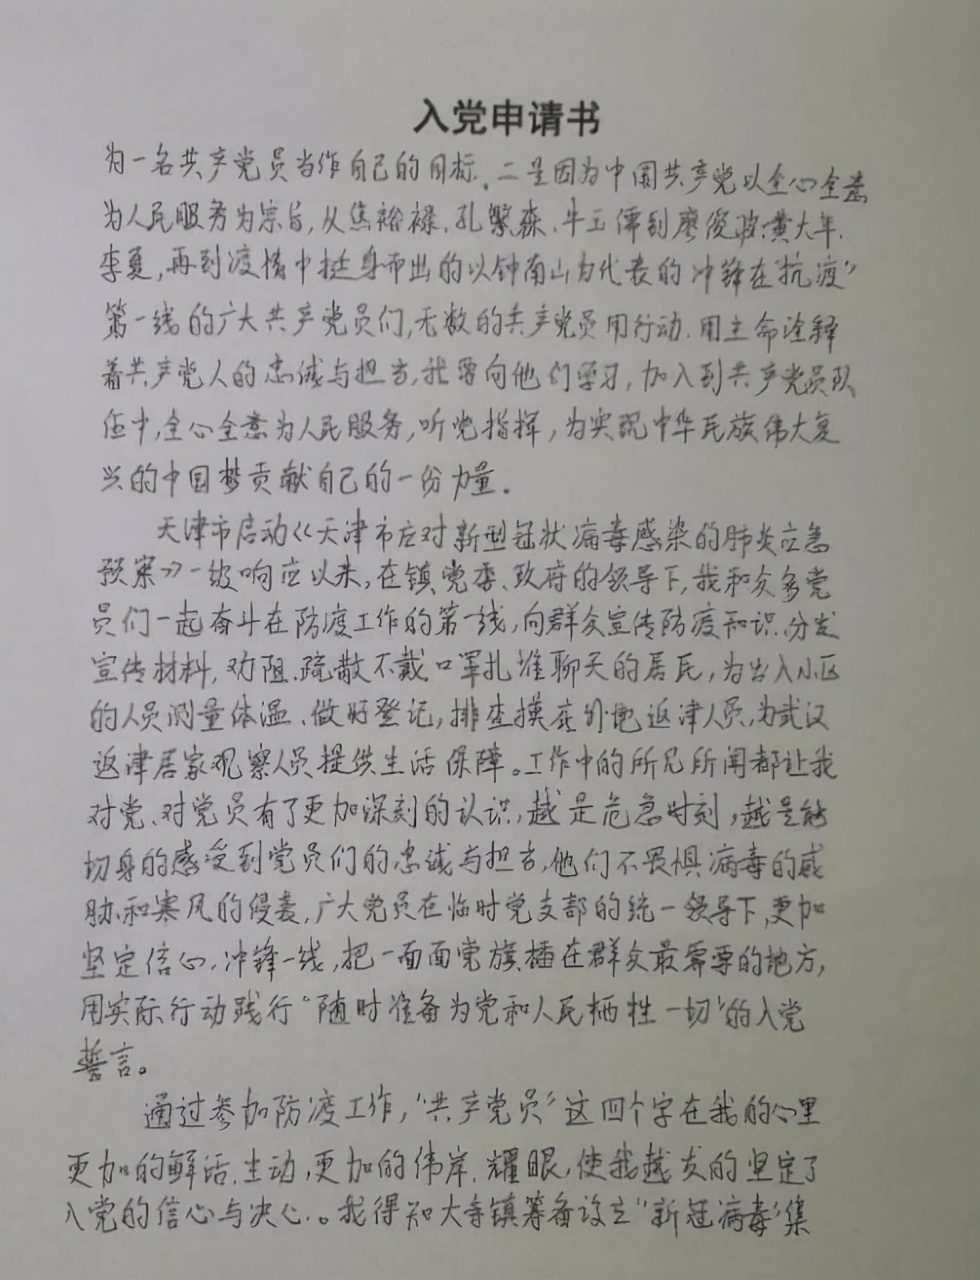 入党申请书
为一名共产党员当作自己的目标。二是因为中国共产党以全心全意
为人民服务为宗旨，从焦裕禄、孔繁森、牛玉儒到廖俊波、黄大年、
李夏，再到疫情中挺身而出的以钟南山为代表的冲锋在“抗疫”
第一线的广大共产党员们，无数的共产党员用行动、用生命诠释
着共产党人的忠诚与担当，我要向他们学习，加入到共产党员队
伍中，全心全意为人民服务，听党指挥，为实现中华民族伟大复
兴的中国梦贡献自己的一份力量。
天津市启动《天津市应对新型冠状病毒感染的肺炎应急
预案》一级响应以来，在镇党委、政府的领导下，我和众多党
员们一起奋斗在防疫工作的第一线，向群众宣传防疫知识、分发
宣传材料，劝阻、疏散不戴口罩扎堆聊天的居民，为出入小区
的人员测量体温、做好登记，排查摸底外地返津人员，为武汉
返津居家观察人员提供生活保障。工作中的所见所闻都让我
对党、对党员有了更加深刻的认识，越是危急时刻，越是能
切身的感受到党员们的忠诚与担当，他们不畏惧病毒的威
胁和寒风的侵袭，广大党员在临时党支部的统一领导下，更加
坚定信心、冲锋一线，把一面面党旗插在群众最需要的地方，
用实际行动践行“随时准备为党和人民牺牲一切”的入党
誓言。
通过参加防疫工作，“共产党员”这四个字在我的心里
更加的鲜活、生动，更加的伟岸、耀眼，使我越发的坚定了
入党的信心与决心。我得知大寺镇筹备设立“新冠病毒”集